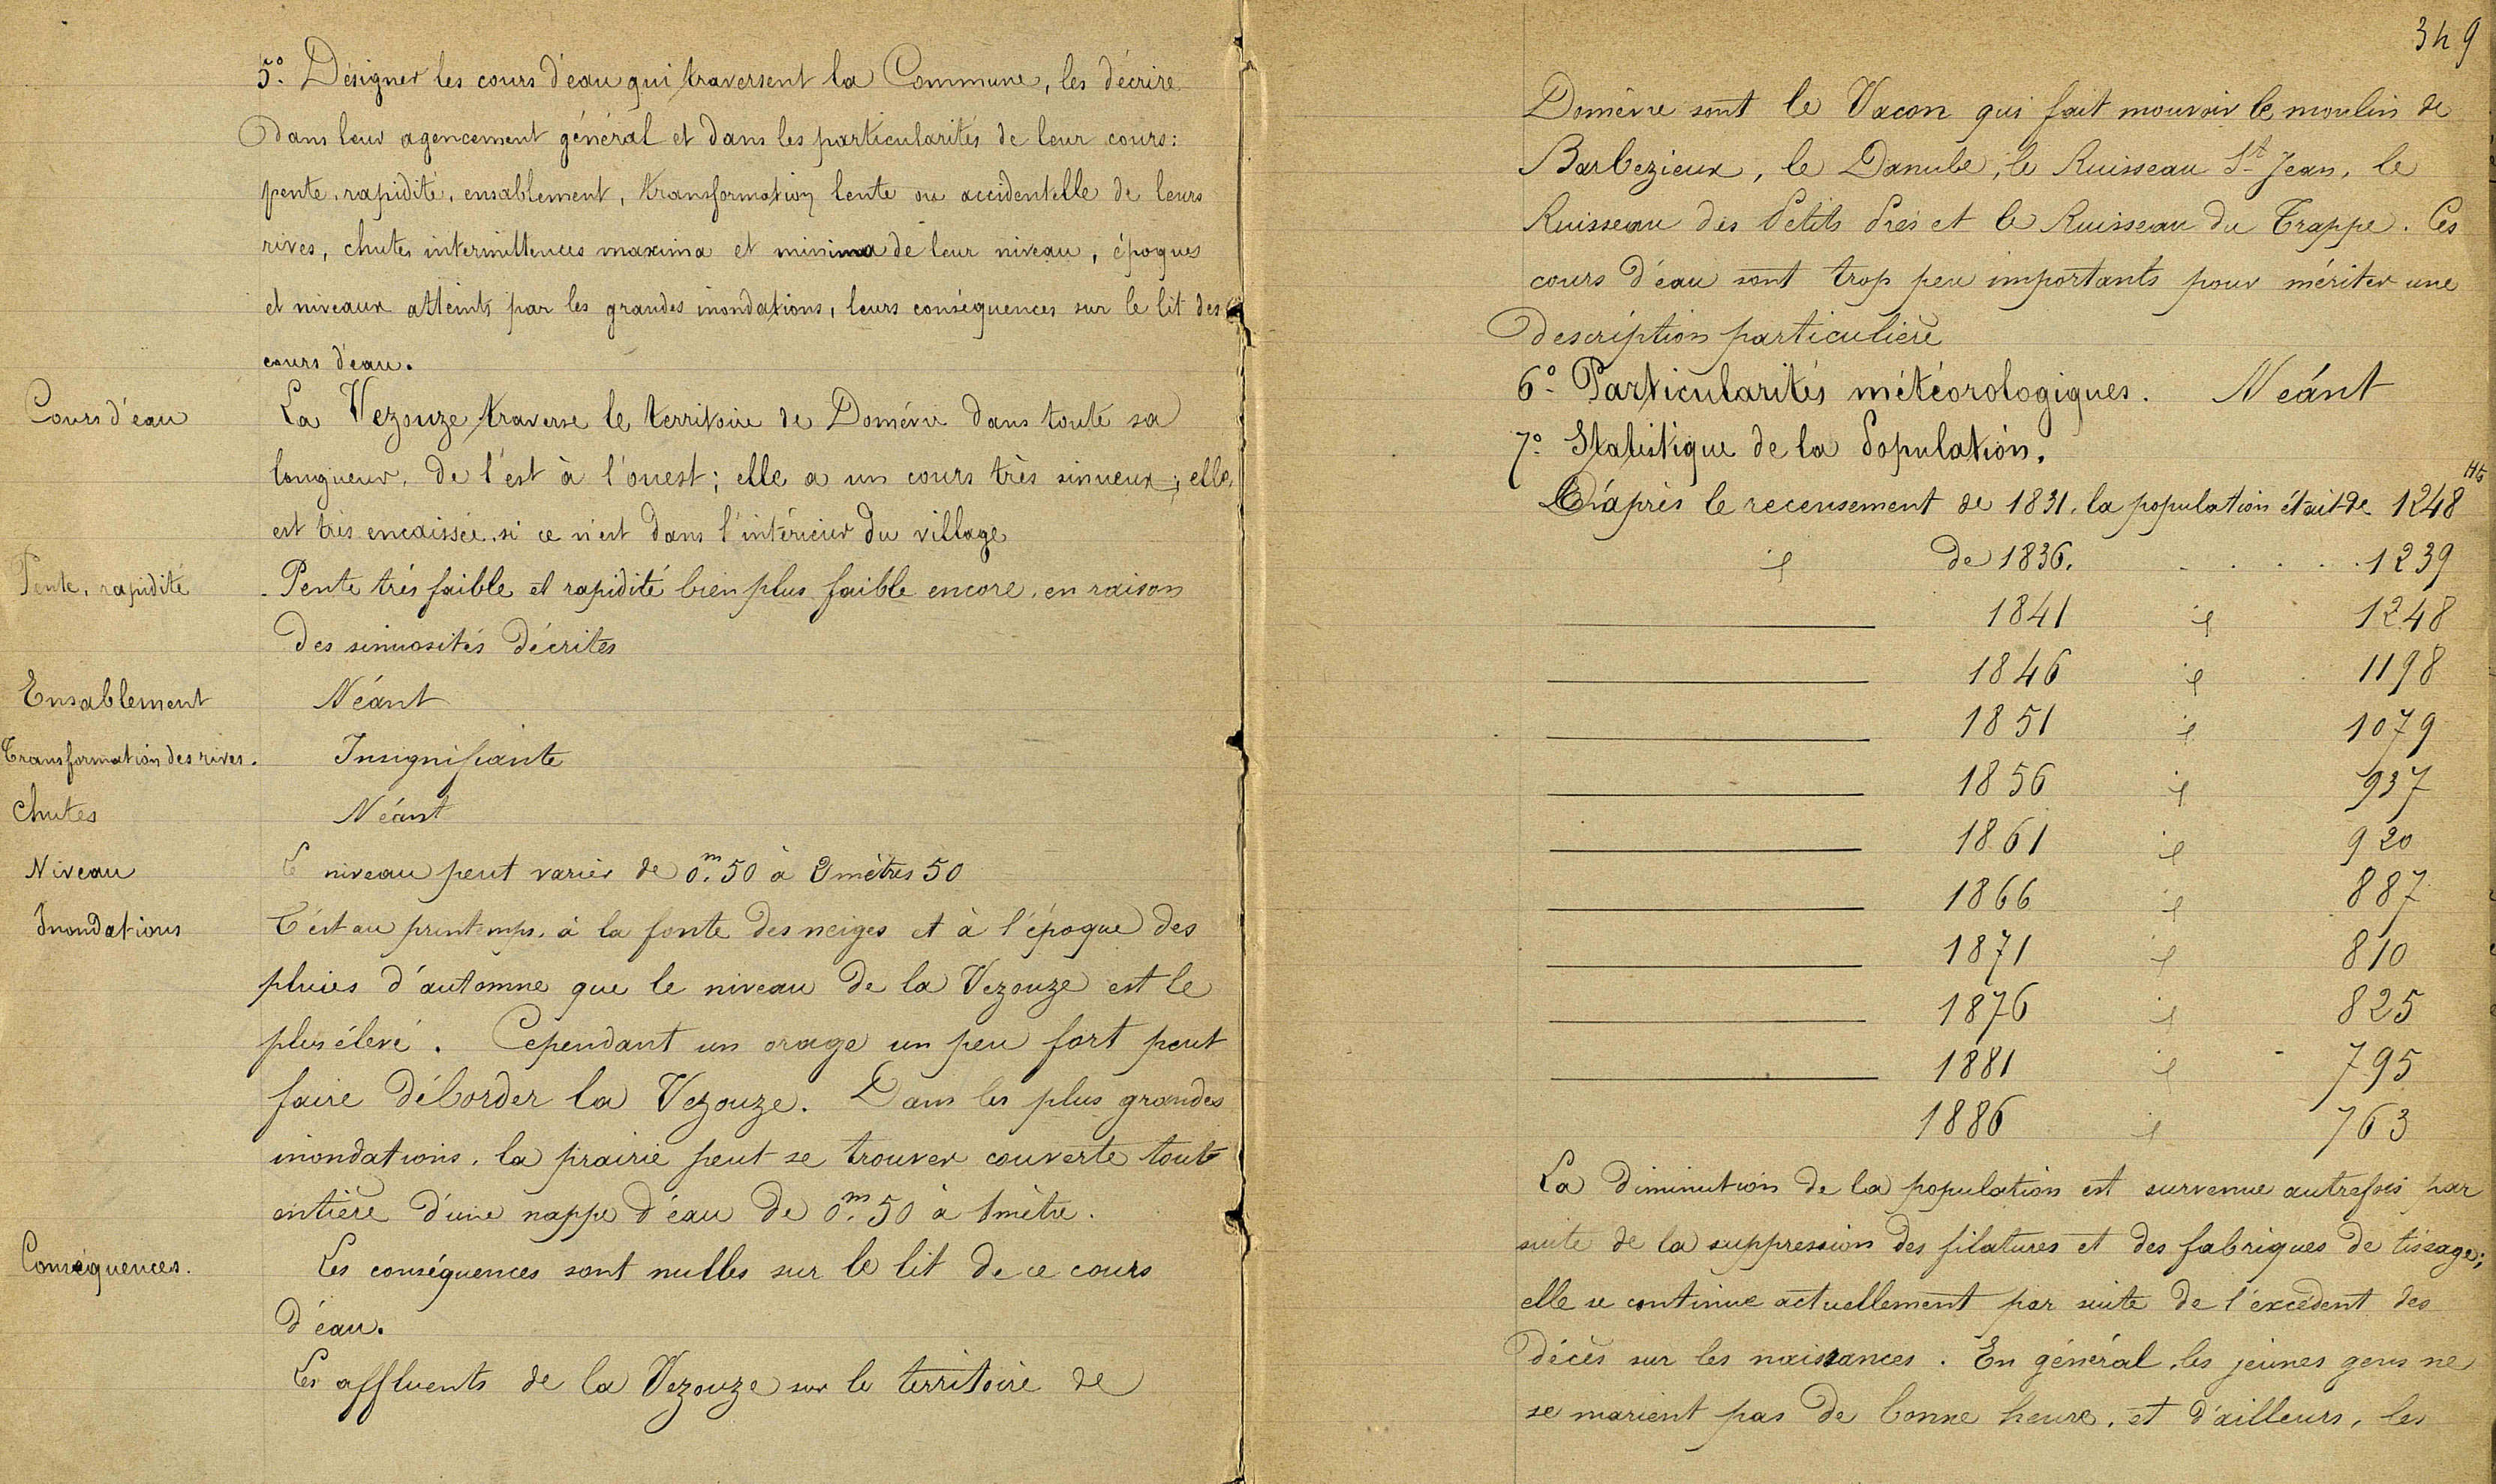 5°. Désigner les cours d'eau qui traversent la Commune, les décrire
dans leur agencement général et dans les particularités de leur cours:
pente, rapidité, ensablement, transformation lente ou accidentelle de leurs
rives, chutes intermittences maxima et minima de leur niveau, époques
et niveaux atteints par les grandes inondations, leurs conséquences sur le lit des
cours d'eau.
Cours d'eau La Vezouze traverse le territoire de Domèvre dans toute sa
longueur, de l'est à l'ouest; elle a un cours très sinueux; elle
est très encaissée, si ce n'est dans l'intérieur du village
Pente, rapidité Pente très faible et rapidité bien plus faible encore, en raison
des sinuosités décrites
Ensablement Néant
Transformation des rives. Insignifiante
Chutes Néant
Niveau Le niveau peut varier de 0,m50 à 2 mètres 50
Inondations C'est au printemps, à la fonte des neiges et à l'époque des
pluies d'automne que le niveau de la Vezouze est le
plus élevé. Cependant un orage un peu fort peut
faire déborder la Vezouze. Dans les plus grandes
inondations, la prairie peut se trouver couverte toute
entière d'une nappe d'eau de 0,m50 à 1 mètre.
Conséquences. Les conséquences sont nulles sur le lit de ce cours
d'eau.
Les affluents de la Vezouze sur le territoire de
349
Domèvre sont le Vacon qui fait mouvoir le moulin de
Barbezieux, le Danube, le Ruisseau St Jean, le
Ruisseau des Petits Prés et le Ruisseau du Trappe. Ces
cours d'eau sont trop peu importants pour mériter une
description particulière
6° Particularités météorologiques. Néant
7° Statistique de la Population.
D'après le recensement de 1831, la population était de 1248 Hts
id de 1836. . . . . . 1239
1841 id 1248
1846 id 1198
1851 id 1079
1856 id 937
1861 id 920
1866 id 887
1871 id 810
1876 id 825
1881 id 795
1886 id 763
La diminution de la population est survenue autrefois par
suite de la suppression des filatures et des fabriques de tissage;
elle se continue actuellement par suite de l'excédent des
décès sur les naissances. En général, les jeunes gens ne
se marient pas de bonne heure, et d'ailleurs, les